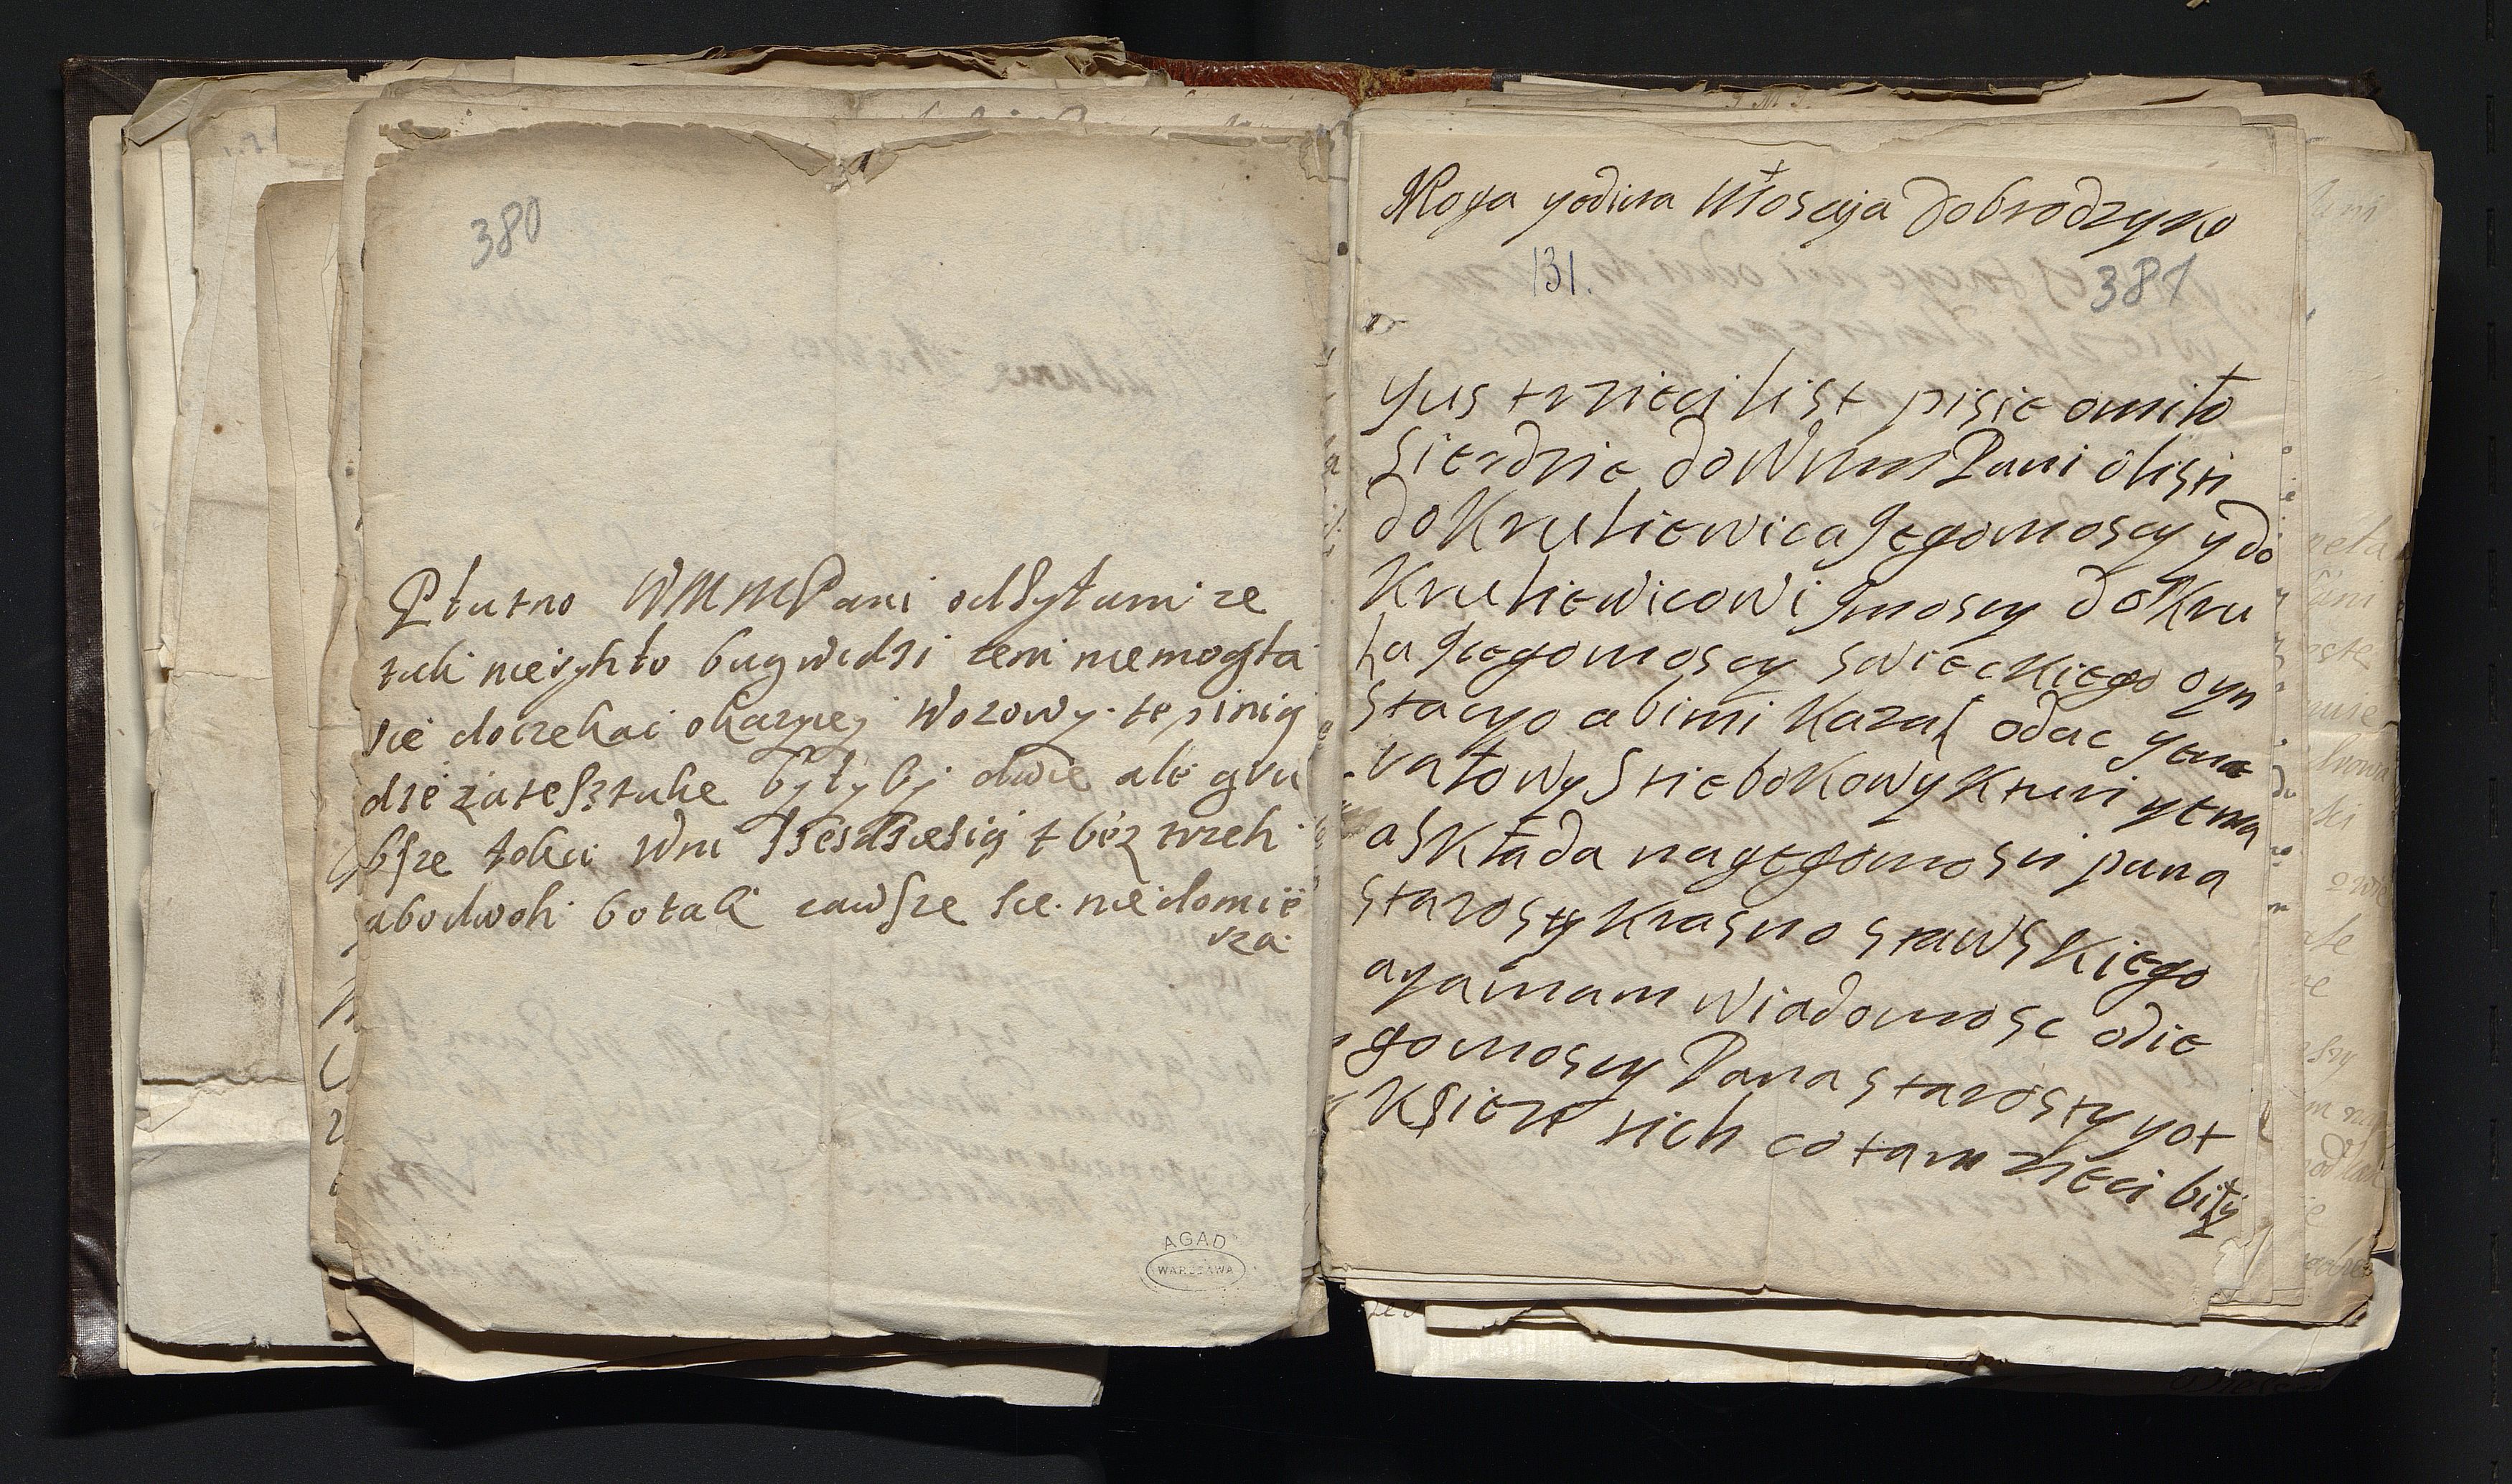 380
Płutno WMMPani odsyłam ze
tak nieryhło bug widzi zem niemogła
sie doczekac okazyej Wozowy. te pinią
dze zatesztuke byłyby dwie ale gru
bsze łokci wni szesdziesią t bez trzeh
abodwoh botak zawsze sie niedomie
rza
AGAD
WARSZAWA
Moya yedina Mosciya Dobrodzyko
131.
381
yus trzieci list pisie omiło
sierdzie do Wmm Pani o listi
do Kruliewica Jegomoscy y do
Kruliewicowi Jmoscy do Kru
la Jiegomoscy swieckiego oyn
stacyo abimi Kazał odac
rałowy Striebokowy Kturi
a składa nagegomosci pana
starosty Krasnostawskiego
ayamam Wiadomosc odie
gomoscy Pana starosty yot
Ksiezi tich co tam zieci biły